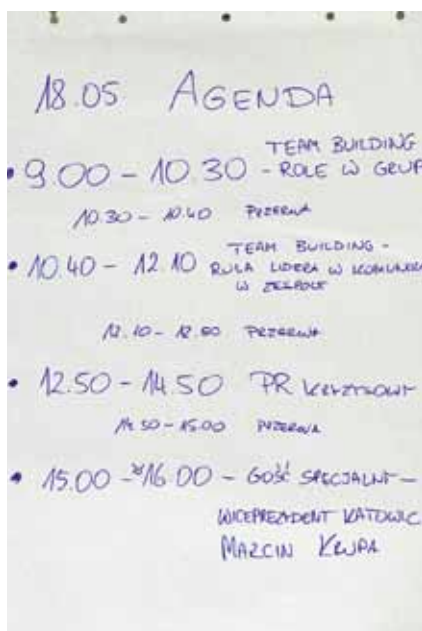 18.05 AGENDA
TEAM BUILDING
• 9.00 - 10.30 - ROLE W GRUP
10.30 - 10.40 PRZERWA
TEAM BUILDING -
• 10.40 - 12.10 ROLA LIDERA W KOMUNIKA
W ZESPOLE
12.10 - 12.50 PRZERWA
• 12.50 - 14.50 PR KRYZYSOWY
14.50 - 15.00 PRZERWA
• 15.00 - 16.00 - GOŚĆ SPECJALNY -
WICEPREZYDENT KATOWIC
MARCIN KRUPA